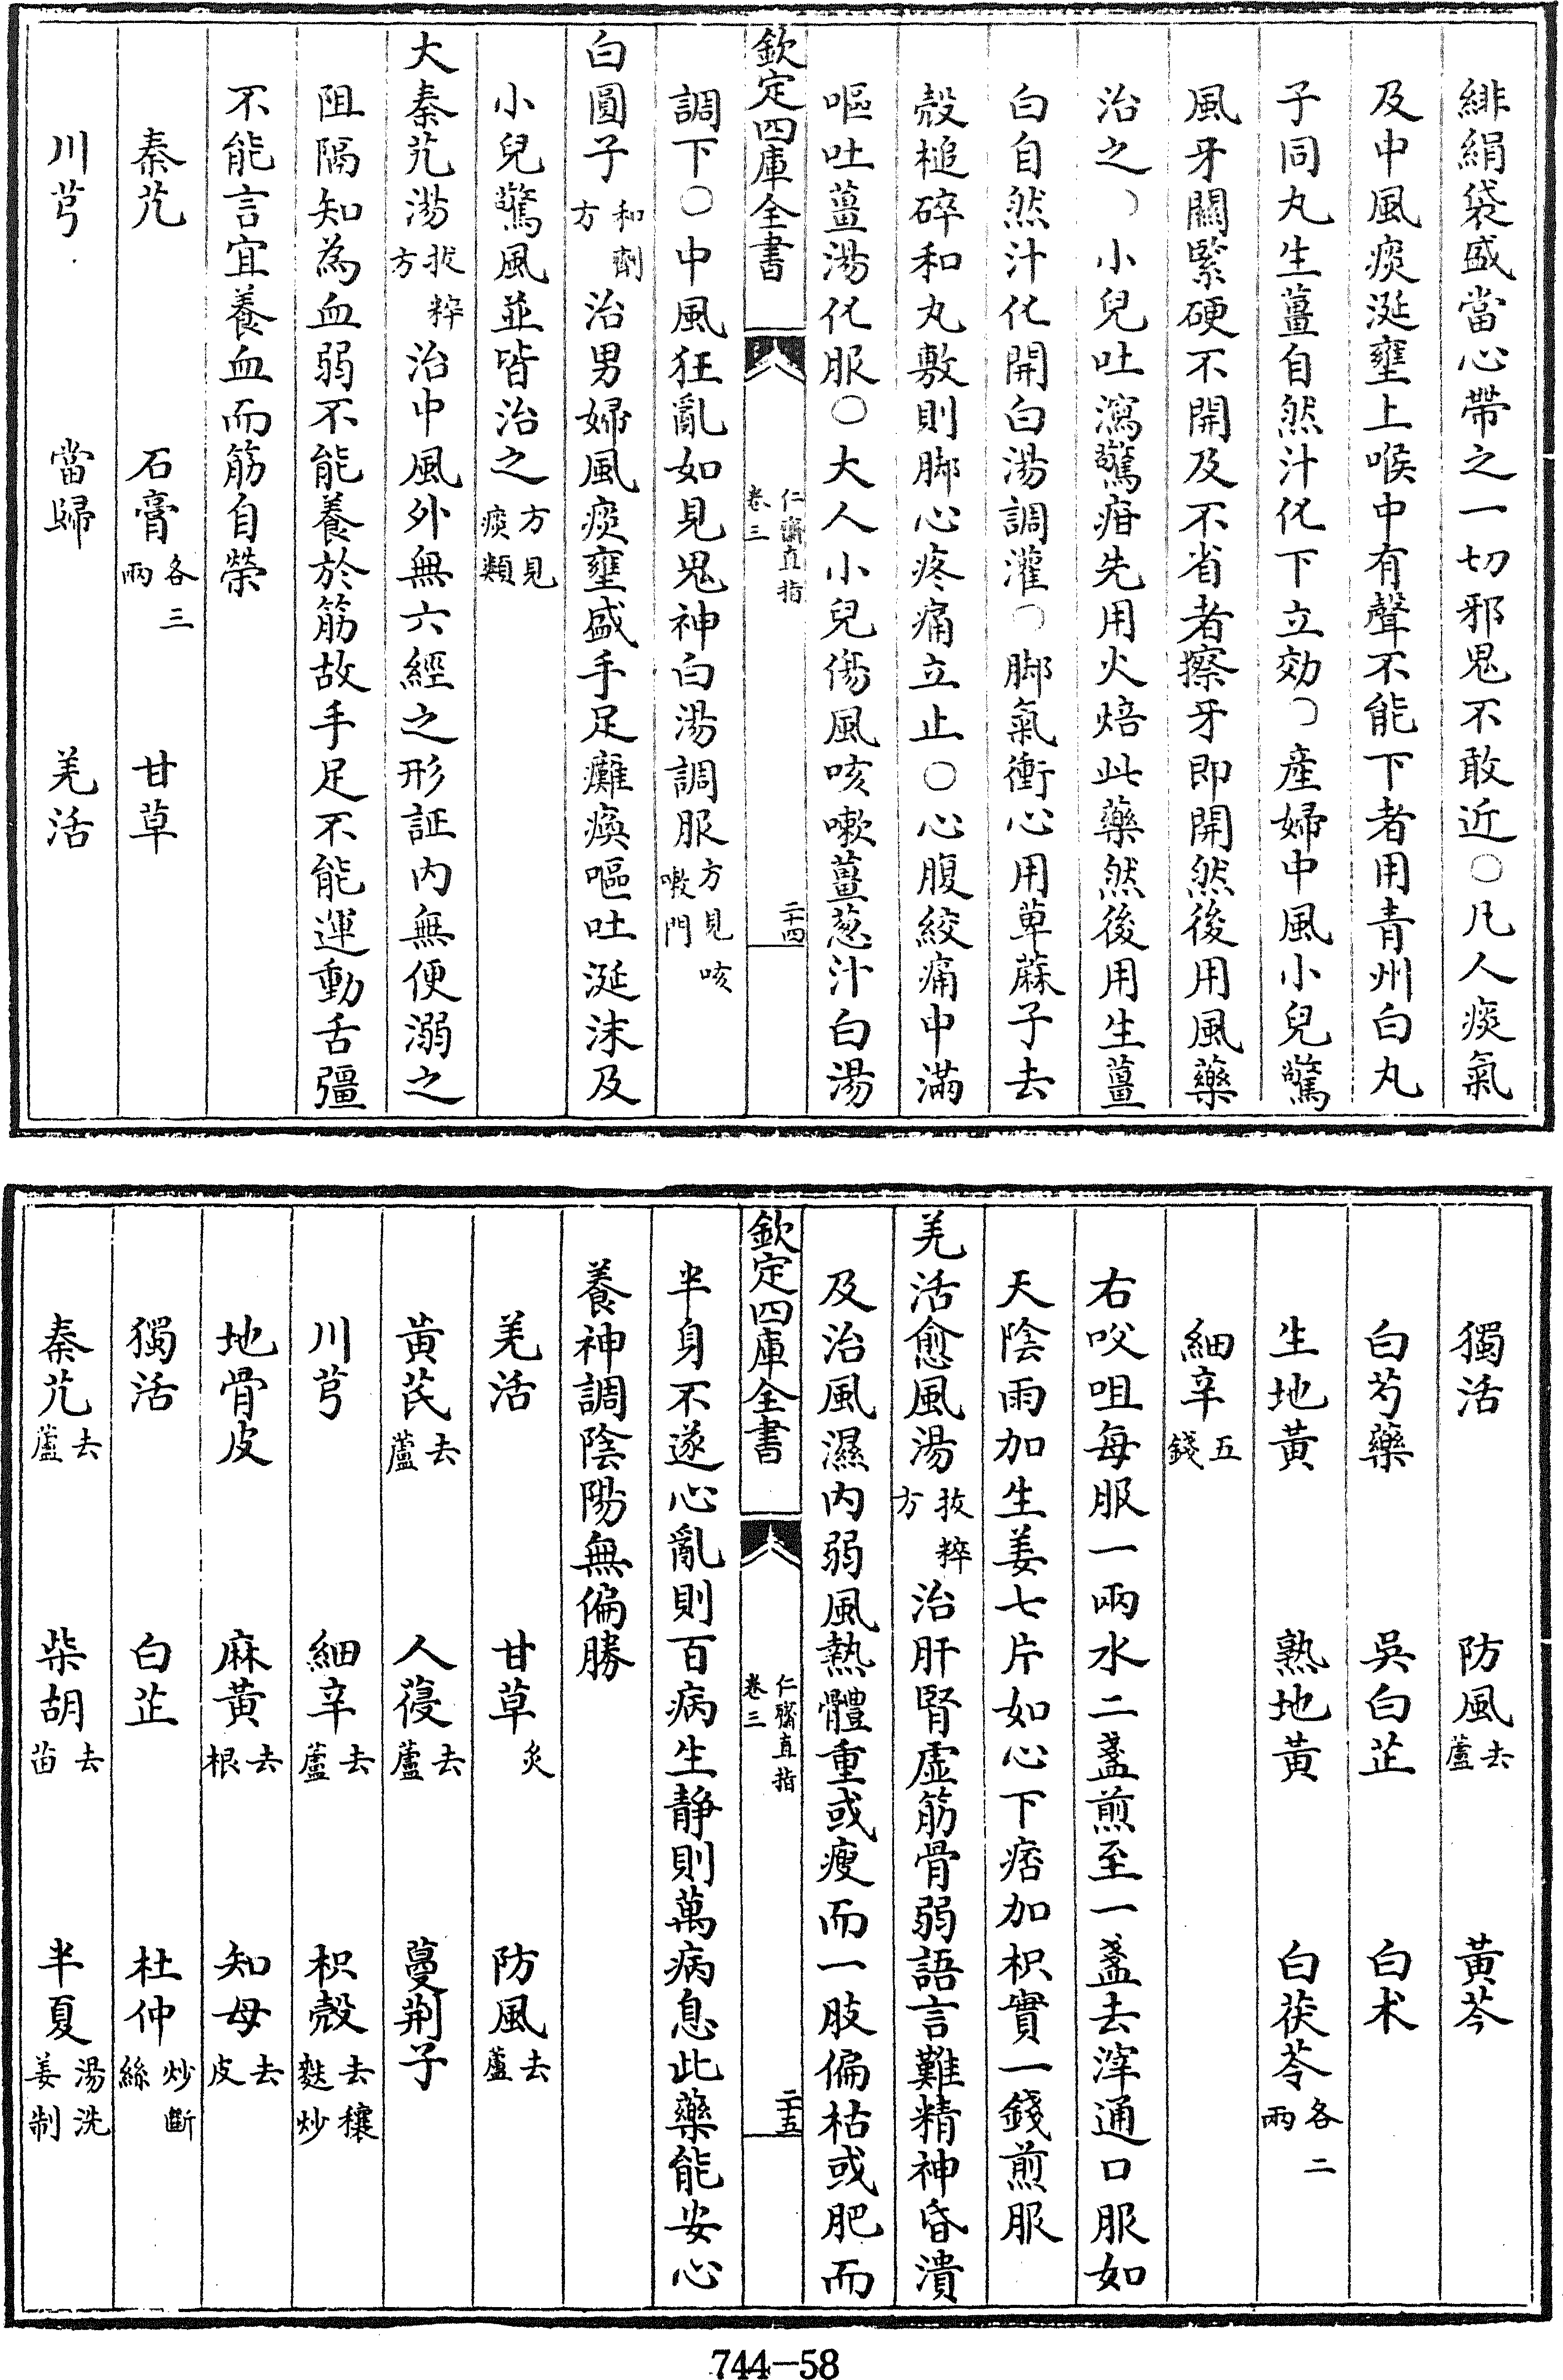 緋絹袋盛當心帶之一切邪鬼不敢近〇凡人痰氣
及中風痰涎壅上喉中有聲不能下者用青州白丸
子同丸生薑自然汁化下立効〇産婦中風小兒驚
風牙關緊硬不開及不省者擦牙即開然後用風藥
治之〇小兒吐瀉驚疳先用火焙此藥然後用生薑
白自然汁化開白湯調灌〇脚氣衝心用萆蔴子去
殼槌碎和丸敷則脚心疼痛立止〇心腹絞痛中滿
嘔吐薑湯化服〇大人小兒傷風咳嗽薑葱汁白湯
欽定四庫全書 仁齋直指 卷三 二十四
調下〇中風狂亂如見鬼神白湯調服方見咳嗽門
白圓子和劑方治男婦風痰壅盛手足癱瘓嘔吐涎沫及
小兒驚風並皆治之方見痰類
大秦艽湯拔粹方治中風外無六經之形証内無便溺之
阻隔知為血弱不能養於筋故手足不能運動舌彊
不能言宜養血而筋自榮
秦艽 石膏各三兩 甘草
川芎 當歸 羌活
獨活 防風去蘆 黃芩
白芍藥 吳白芷 白术
生地黃 熟地黃 白茯苓各二兩
細辛五錢
右㕮咀每服一兩水二盞煎至一盞去滓通口服如
天陰雨加生姜七片如心下痞加枳實一錢煎服
羌活愈風湯拔粹方治肝腎虛筋骨弱語言難精神昏潰
及治風濕内弱風熱體重或瘦而一肢偏枯或肥而
欽定四庫全書 仁齋直指 卷三 二十五
半身不遂心亂則百病生静則萬病息此藥能安心
養神調陰陽無偏勝
羌活 甘草炙 防風去蘆
黃芪去蘆 人葠去蘆 蔓荆子
川芎 細辛去蘆 枳殼去穰麩炒
地骨皮 麻黃去根 知母去皮
獨活 白芷 杜仲炒斷絲
秦艽去蘆 柴胡去苗 半夏湯洗姜制
744-58